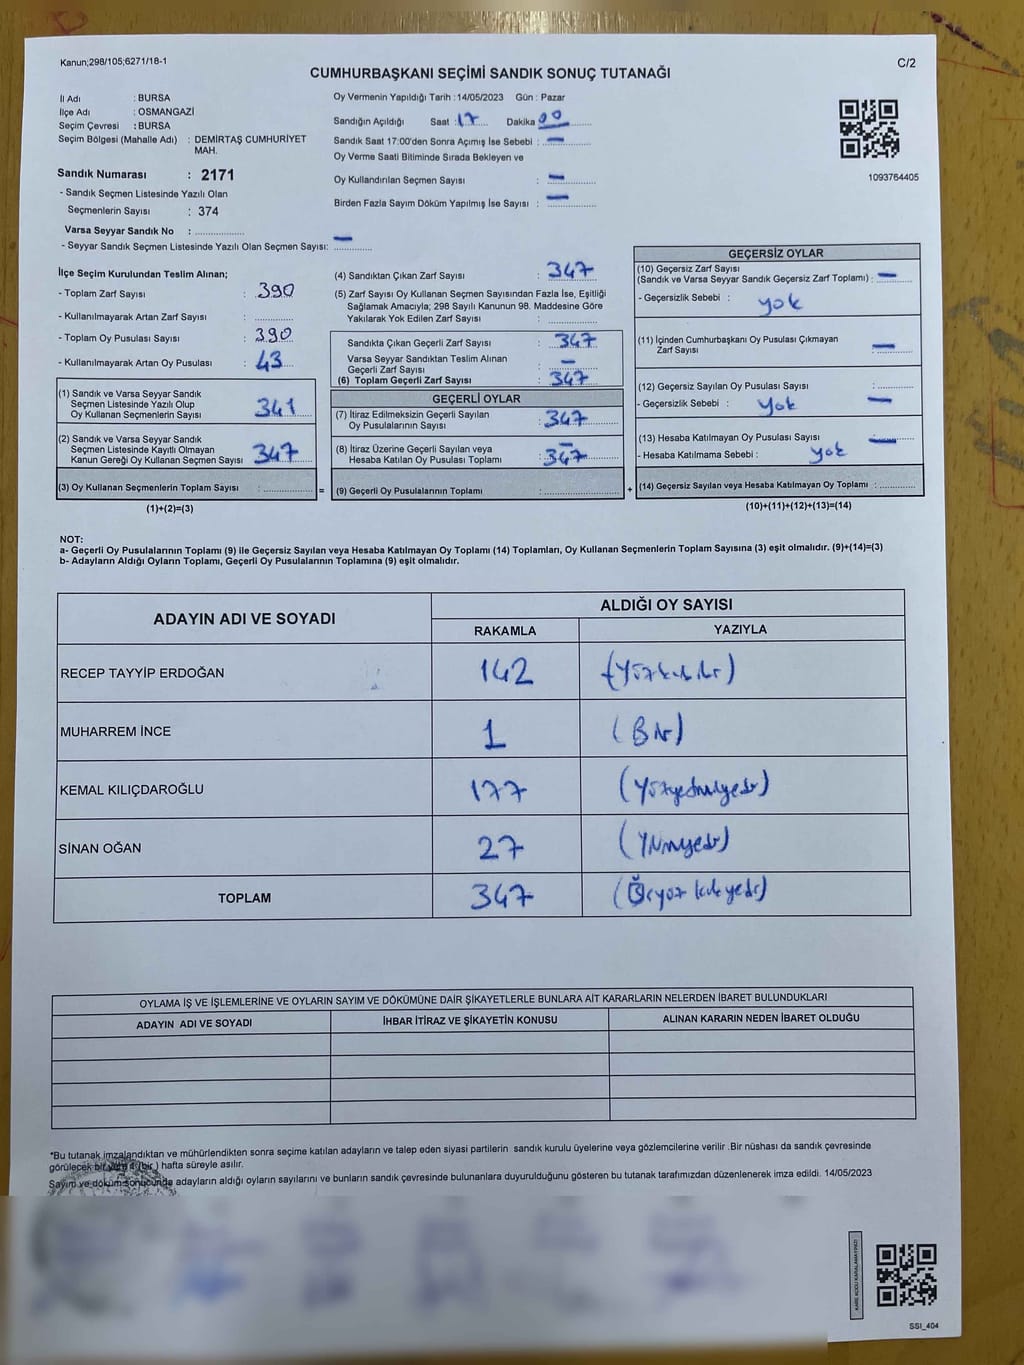 Kanun;298/105;6271/18-1
C/2
CUMHURBAŞKANI SEÇİMİ SANDIK SONUÇ TUTANAĞI
İl Adı : BURSA
İlçe Adı : OSMANGAZİ
Seçim Çevresi : BURSA
Seçim Bölgesi (Mahalle Adı) : DEMİRTAŞ CUMHURİYET
MAH.
Sandık Numarası : 2171
- Sandık Seçmen Listesinde Yazılı Olan
Seçmenlerin Sayısı : 374
Varsa Seyyar Sandık No : ..............
- Seyyar Sandık Seçmen Listesinde Yazılı Olan Seçmen Sayısı: —
Oy Vermenin Yapıldığı Tarih : 14/05/2023 Gün : Pazar
Sandığın Açıldığı Saat : 17 Dakika 00
Sandık Saat 17:00'den Sonra Açımış İse Sebebi : —
Oy Verme Saati Bitiminde Sırada Bekleyen ve
Oy Kullandırılan Seçmen Sayısı : —
Birden Fazla Sayım Döküm Yapılmış İse Sayısı : —
1093764405
İlçe Seçim Kurulundan Teslim Alınan;
- Toplam Zarf Sayısı : 390
- Kullanılmayarak Artan Zarf Sayısı : ..............
- Toplam Oy Pusulası Sayısı : 390
- Kullanılmayarak Artan Oy Pusulası : 43
(1) Sandık ve Varsa Seyyar Sandık
Seçmen Listesinde Yazılı Olup
Oy Kullanan Seçmenlerin Sayısı : 341
(2) Sandık ve Varsa Seyyar Sandık
Seçmen Listesinde Kayıtlı Olmayan
Kanun Gereği Oy Kullanan Seçmen Sayısı : 347
(3) Oy Kullanan Seçmenlerin Toplam Sayısı : ..............
(1)+(2)=(3)
(4) Sandıktan Çıkan Zarf Sayısı : 347
(5) Zarf Sayısı Oy Kullanan Seçmen Sayısından Fazla İse, Eşitliği
Sağlamak Amacıyla; 298 Sayılı Kanunun 98. Maddesine Göre
Yakılarak Yok Edilen Zarf Sayısı : ..............
Sandıkta Çıkan Geçerli Zarf Sayısı : 347
Varsa Seyyar Sandıktan Teslim Alınan
Geçerli Zarf Sayısı : —
(6) Toplam Geçerli Zarf Sayısı : 347
GEÇERLİ OYLAR
(7) İtiraz Edilmeksizin Geçerli Sayılan
Oy Pusulalarının Sayısı : 347
(8) İtiraz Üzerine Geçerli Sayılan veya
Hesaba Katılan Oy Pusulası Toplamı : 347
= (9) Geçerli Oy Pusulalarının Toplamı : .............. +
GEÇERSİZ OYLAR
(10) Geçersiz Zarf Sayısı
(Sandık ve Varsa Seyyar Sandık Geçersiz Zarf Toplamı) : —
- Geçersizlik Sebebi : yok
(11) İçinden Cumhurbaşkanı Oy Pusulası Çıkmayan
Zarf Sayısı : —
(12) Geçersiz Sayılan Oy Pusulası Sayısı : ..............
- Geçersizlik Sebebi : yok —
(13) Hesaba Katılmayan Oy Pusulası Sayısı : —
- Hesaba Katılmama Sebebi : yok
(14) Geçersiz Sayılan veya Hesaba Katılmayan Oy Toplamı : ..............
(10)+(11)+(12)+(13)=(14)
NOT:
a- Geçerli Oy Pusulalarının Toplamı (9) ile Geçersiz Sayılan veya Hesaba Katılmayan Oy Toplamı (14) Toplamları, Oy Kullanan Seçmenlerin Toplam Sayısına (3) eşit olmalıdır. (9)+(14)=(3)
b- Adayların Aldığı Oyların Toplamı, Geçerli Oy Pusulalarının Toplamına (9) eşit olmalıdır.
ADAYIN ADI VE SOYADI
ALDIĞI OY SAYISI
RAKAMLA YAZIYLA
RECEP TAYYİP ERDOĞAN 142 (Yüzkırkiki)
MUHARREM İNCE 1 (Bir)
KEMAL KILIÇDAROĞLU 177 (Yüzyetmişyedi)
SİNAN OĞAN 27 (Yirmiyedi)
TOPLAM 347 (Üçyüz kırkyedi)
OYLAMA İŞ VE İŞLEMLERİNE VE OYLARIN SAYIM VE DÖKÜMÜNE DAİR ŞİKAYETLERLE BUNLARA AİT KARARLARIN NELERDEN İBARET BULUNDUKLARI
ADAYIN ADI VE SOYADI
İHBAR İTİRAZ VE ŞİKAYETİN KONUSU
ALINAN KARARIN NEDEN İBARET OLDUĞU
*Bu tutanak imzalandıktan ve mühürlendikten sonra seçime katılan adayların ve talep eden siyasi partilerin sandık kurulu üyelerine veya gözlemcilerine verilir .Bir nüshası da sandık çevresinde
görülecek bir yere 1 (bir ) hafta süreyle asılır.
Sayım ve döküm sonucunda adayların aldığı oyların sayılarını ve bunların sandık çevresinde bulunanlara duyurulduğunu gösteren bu tutanak tarafımızdan düzenlenerek imza edildi. 14/05/2023
KARE KODU KARALAMAYINIZ!
SSI_404